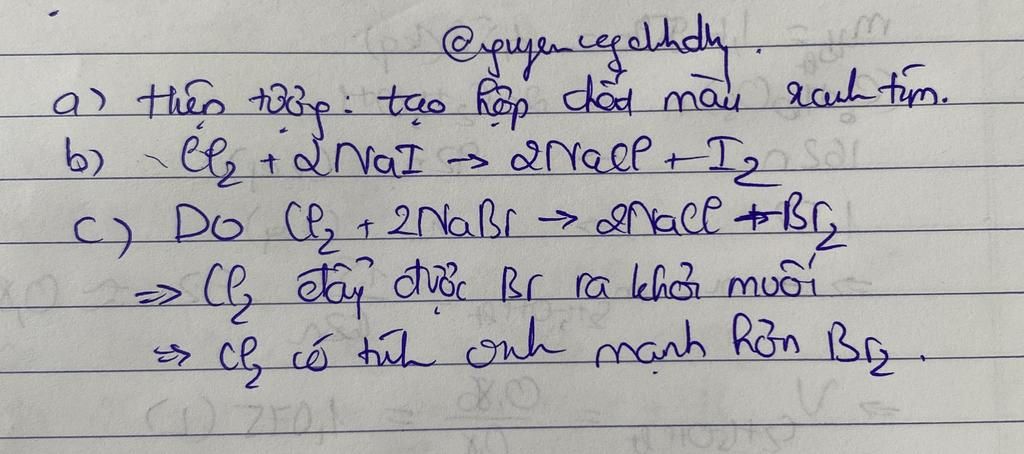 @nguyencegdhdy.
a) Hiện tượng: tạo hợp chất màu xanh tím.
b) Cl₂ + 2NaI → 2NaCl + I₂
c) Do Cl₂ + 2NaBr → 2NaCl + Br₂
⇒ Cl₂ đẩy được Br ra khỏi muối
⇒ Cl₂ có tính oxh mạnh hơn Br₂.